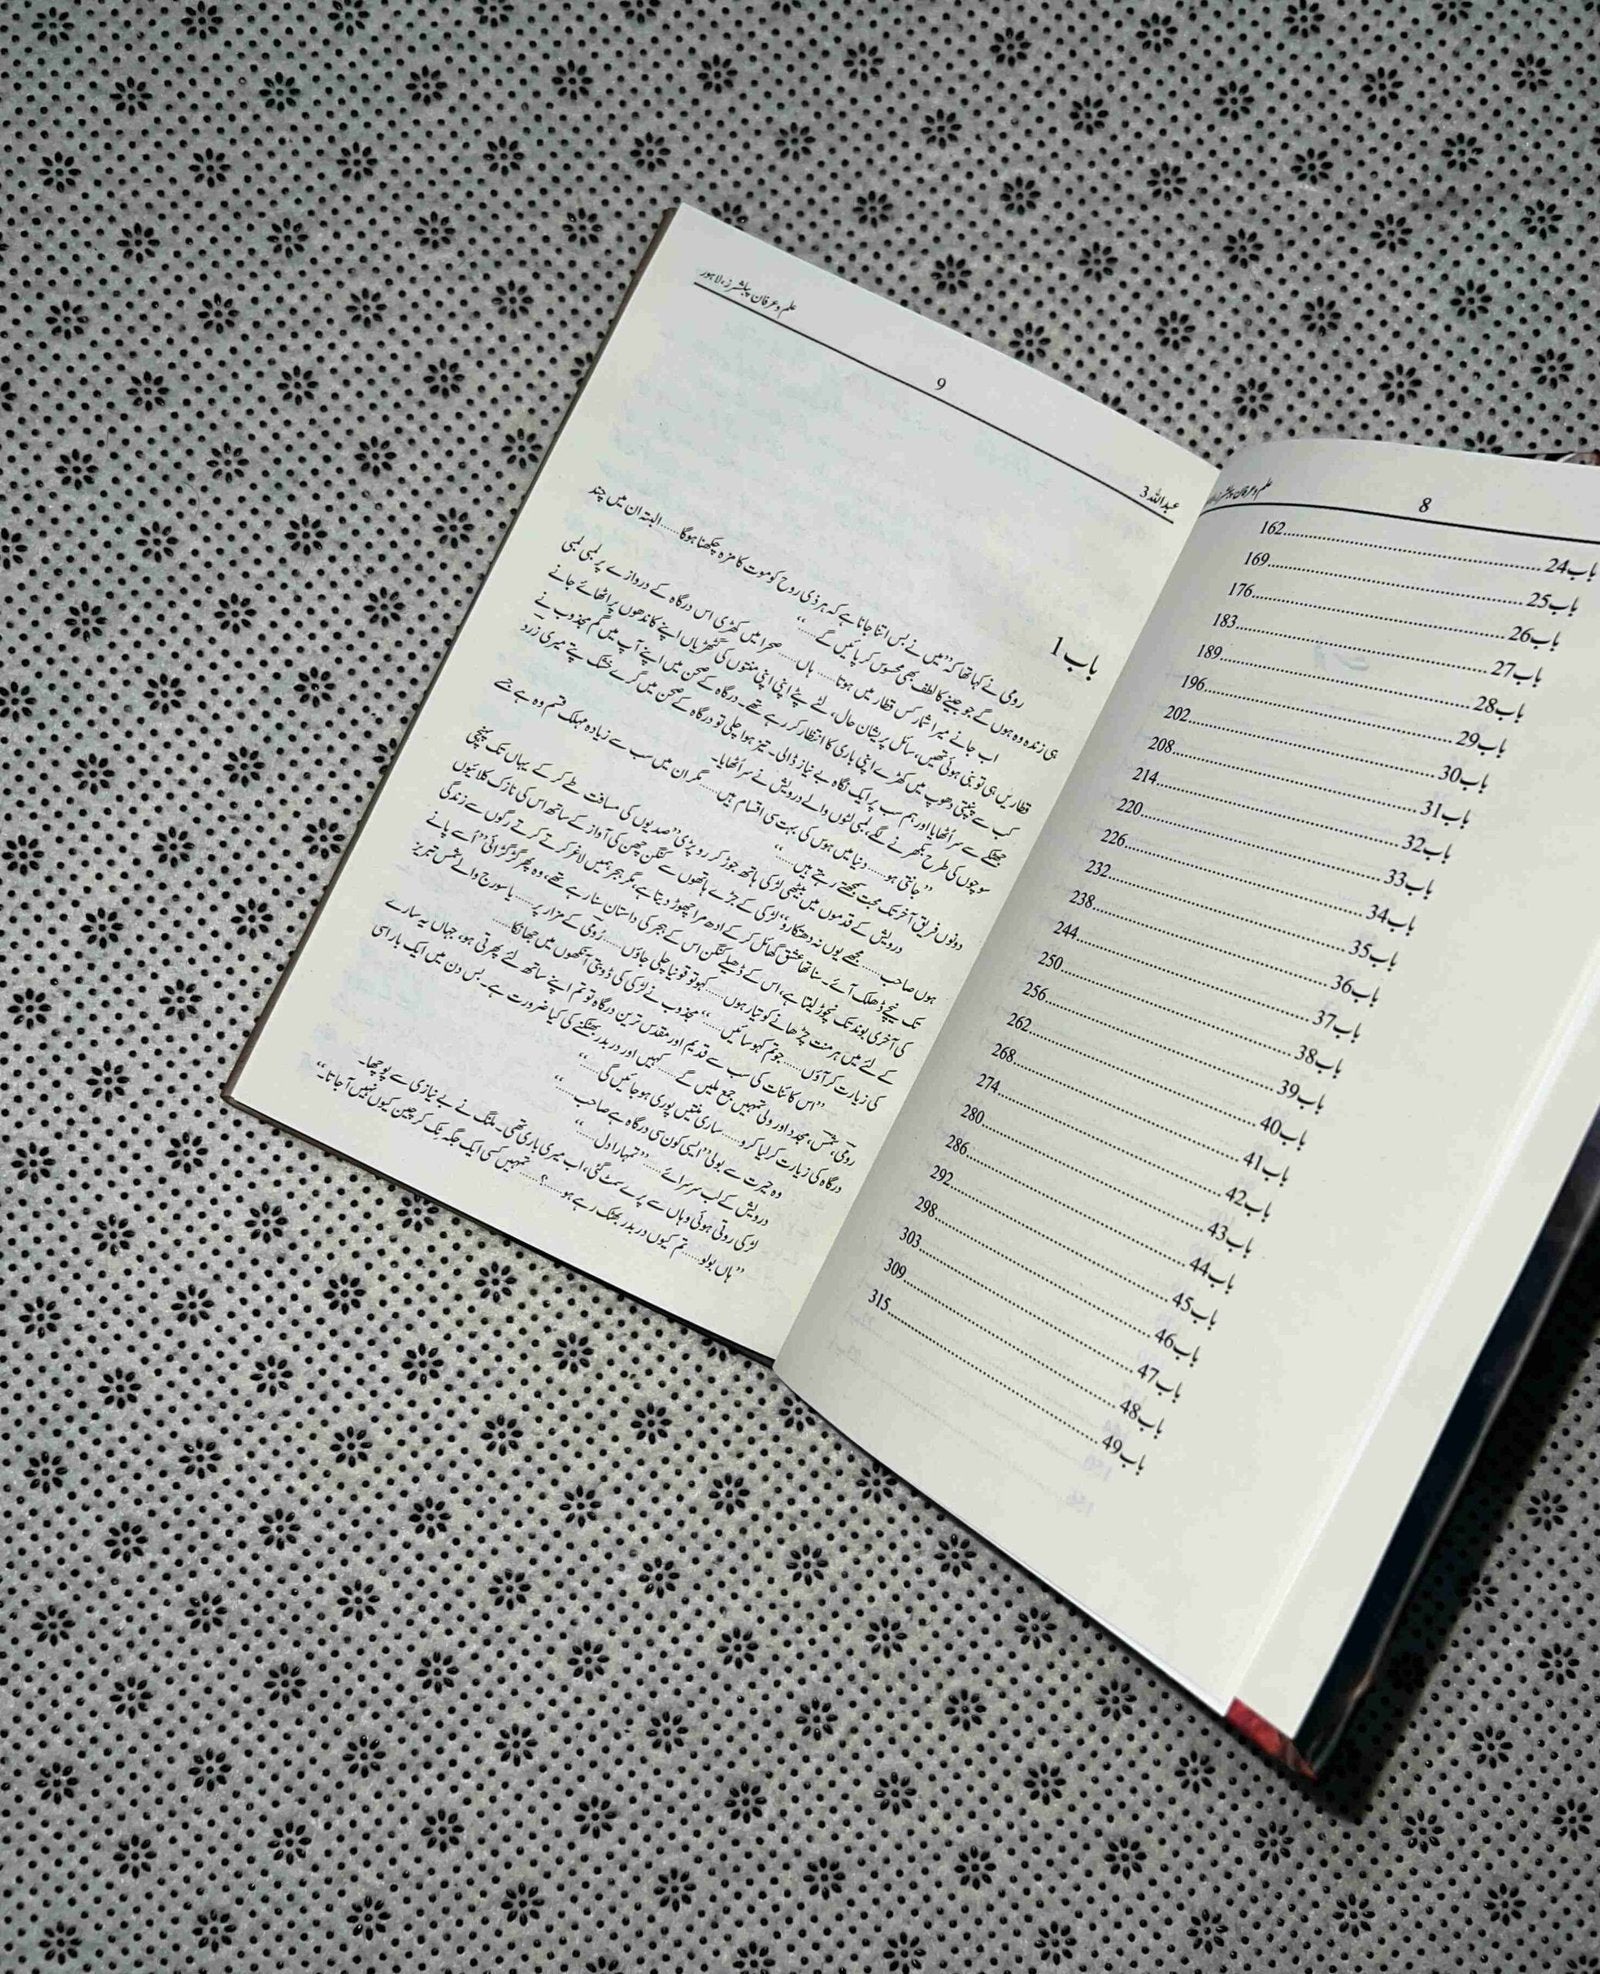 علم و عرفان پبلشرز، لاہور
8
باب24......162
باب25......169
باب26......176
باب27......183
باب28......189
باب29......196
باب30......202
باب31......208
باب32......214
باب33......220
باب34......226
باب35......232
باب36......238
باب37......244
باب38......250
باب39......256
باب40......262
باب41......268
باب42......274
باب43......280
باب44......286
باب45......292
باب46......298
باب47......303
باب48......309
باب49......315
عبداللہ 3
9
علم و عرفان پبلشرز، لاہور
باب 1
رومی نے کہا تھا کہ ”میں نے بس اتنا جانا ہے کہ ہر ذی روح کو موت کا مزہ چکھنا ہوگا......البتہ ان میں چند
ہی زندہ وہ ہوں گے جو جینے کا لطف بھی محسوس کر پائیں گے......“
اب جانے میرا شمار کس قطار میں ہوتا...... ہاں...... صحرا میں کھڑی اس درگاہ کے دروازے پر لمبی لمبی
قطاریں ہی تو بنی ہوئی تھیں، سائل پریشان حال، لٹے پٹے اپنی اپنی منتوں کی گٹھڑیاں اپنے کاندھوں پر اٹھائے جانے
کب سے تپتی دھوپ میں کھڑے اپنی باری کا انتظار کر رہے تھے۔ درگاہ کے صحن میں اپنے آپ میں گم مجذوب نے
جھٹکے سے سر اُٹھایا اور ہم سب پر ایک نگاہ بے نیاز ڈالی۔ تیز ہوا چلی تو درگاہ کے صحن میں گرے خشک پتے میری زرد
سوچوں کی طرح بکھرنے لگے، لمبی لٹوں والے درویش نے سر اُٹھایا۔
”جانتی ہو......دنیا میں ہوس کی بہت سی اقسام ہیں......مگر ان میں سب سے زیادہ مہلک قسم وہ ہے جسے
دونوں فریق آخر تک محبت سمجھتے رہتے ہیں......“
درویش کے قدموں میں بیٹھی لڑکی ہاتھ جوڑ کر رو پڑی ”صدیوں کی مسافت طے کر کے یہاں تک پہنچی
ہوں صاحب......مجھے یوں نہ دھتکارو“ لڑکی کے جڑے ہاتھوں کے کنگن چھن کی آواز کے ساتھ اس کی نازک کلائیوں
تک نیچے ڈھلک آئے۔ سنا تھا عشق گھائل کر کے ادھ مرا چھوڑ دیتا ہے، مگر ہجر ہمیں لاغر کرتے کرتے رگوں سے زندگی
کی آخری بوند تک نچوڑ لیتا ہے، اس کے ڈھیلے کنگن اس کے ہجر کی داستان سنا رہے تھے، وہ پھر گڑگڑائی ”اُسے پانے
کے لئے میں ہر منت چڑھانے کو تیار ہوں......کہو تو قونیا چلی جاؤں......رُومی کے مزار پر......یا سورج والے شمس تبریز
کی زیارت کر آؤں......جو تم کہو سائیں......“ مجذوب نے لڑکی کی ڈوبتی آنکھوں میں جھانکا......
”اس کائنات کی سب سے قدیم اور مقدس ترین درگاہ تو تم اپنے ساتھ لئے پھرتی ہو، جہاں یہ سارے
رومی، شمس، مجدد اور ولی تمہیں جمع ملیں گے......کہیں اور در بدر بھٹکنے کی کیا ضرورت ہے۔ بس دن میں ایک بار اسی
درگاہ کی زیارت کر لیا کرو......ساری منتیں پوری ہو جائیں گی......“
وہ حیرت سے بولی ”ایسی کون سی درگاہ ہے صاحب......“
درویش کے لب سرسرائے......”تمہارا دل......“
لڑکی روتی ہوئی وہاں سے پرے ہٹ گئی، اب میری باری تھی۔ ملنگ نے بے نیازی سے پوچھا۔
”ہاں بولو......تم کیوں در بدر بھٹک رہے ہو......؟......تمہیں کسی ایک جگہ ٹک کر چین کیوں نہیں آجاتا۔“